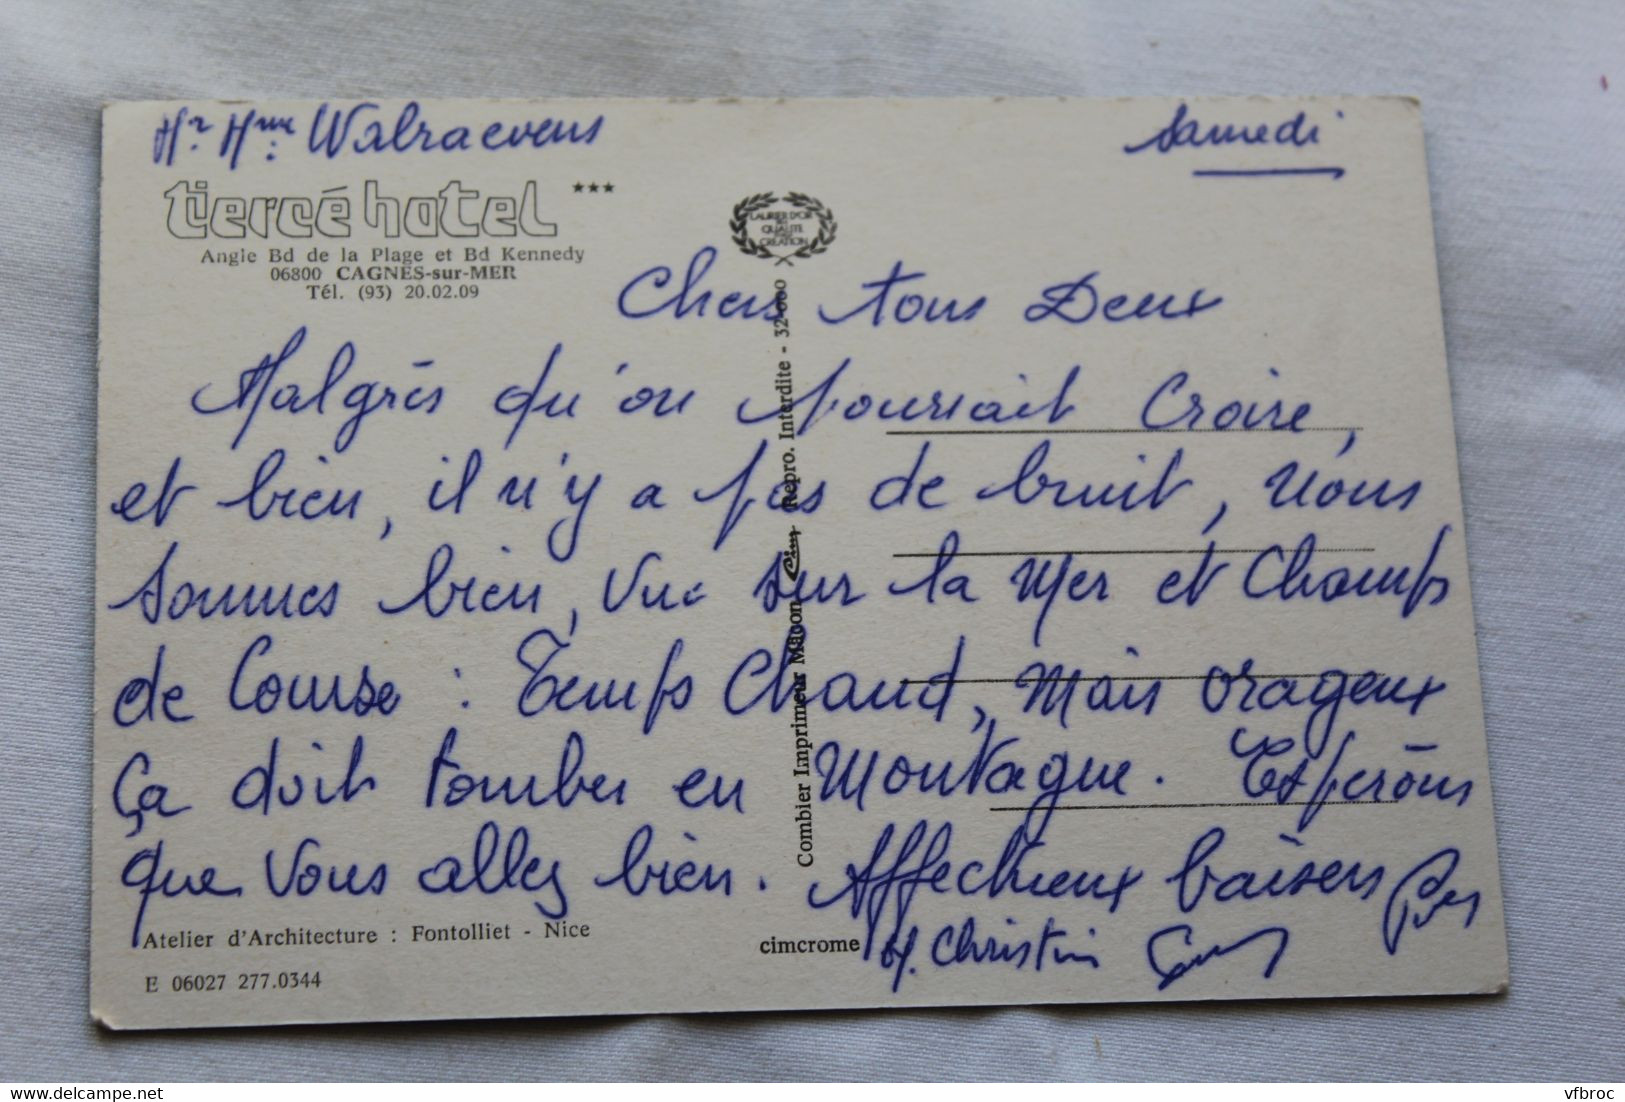 Mr Mme : Walraevens
Samedi
tiercé hotel ***
Angle Bd de la Plage et Bd Kennedy
06800 CAGNES-sur-MER
Tél. (93) 20.02.09
LAURIER D'OR
DE
QUALITÉ
CRÉATION
Chers tous Deux
Malgrés qu'on pourrait Croire,
et bien, il n'y a pas de bruit, nous
sommes bien, vue sur la mer et Champs
de Course : Temps Chaud, mais orageux
ça doit tomber en montagne. Espérons
que vous allez bien. Affectueux baisers
M. Christin
Combier Imprimeur Mâcon Cim Repro. Interdite - 32-000
Atelier d'Architecture : Fontolliet - Nice
cimcrome
E 06027 277.0344
vfbroc